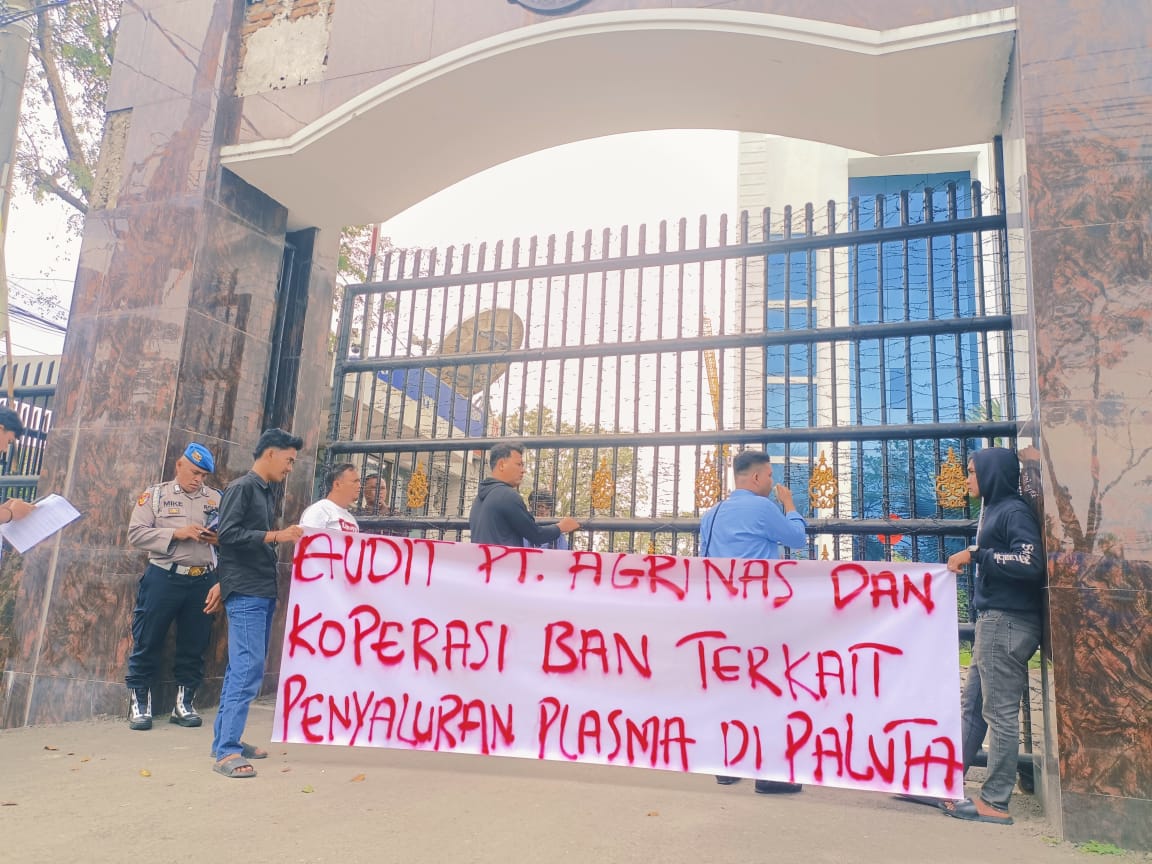 EAUDIT PT. AGRINAS DAN
KOPERASI BAN TERKAIT
PENYALURAN PLASMA DI PALUTA
MIKE